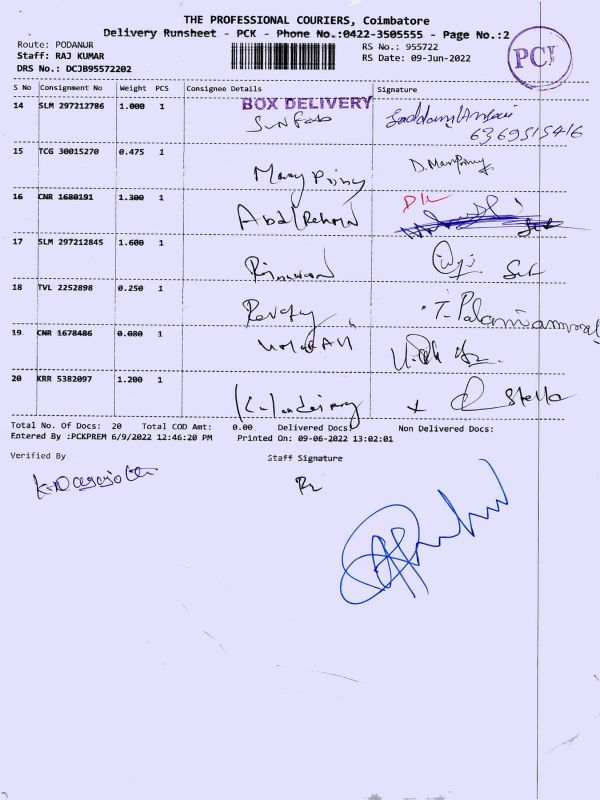 THE PROFESSIONAL COURIERS, Coimbatore
Delivery Runsheet - PCK - Phone No.:0422-3505555 - Page No.:2
Route: PODANUR
Staff: RAJ KUMAR
DRS No.: DCJB95572202
RS No.: 955722
RS Date: 09-Jun-2022
PCI
S No Consignment No Weight PCS Consignee Details Signature
14 SLM 297212786 1.000 1 BOX DELIVERY
6369515416
15 TCG 30015270 0.475 1
16 CNR 1680191 1.300 1
Abdul Rehman
17 SLM 297212845 1.600 1
Rizwan
18 TVL 2252898 0.250 1
19 CNR 1678486 0.080 1
20 KRR 5382097 1.200 1
Stella
Total No. Of Docs: 20 Total COD Amt: 0.00 Delivered Docs: Non Delivered Docs:
Entered By :PCKPREM 6/9/2022 12:46:20 PM Printed On: 09-06-2022 13:02:01
Verified By Staff Signature